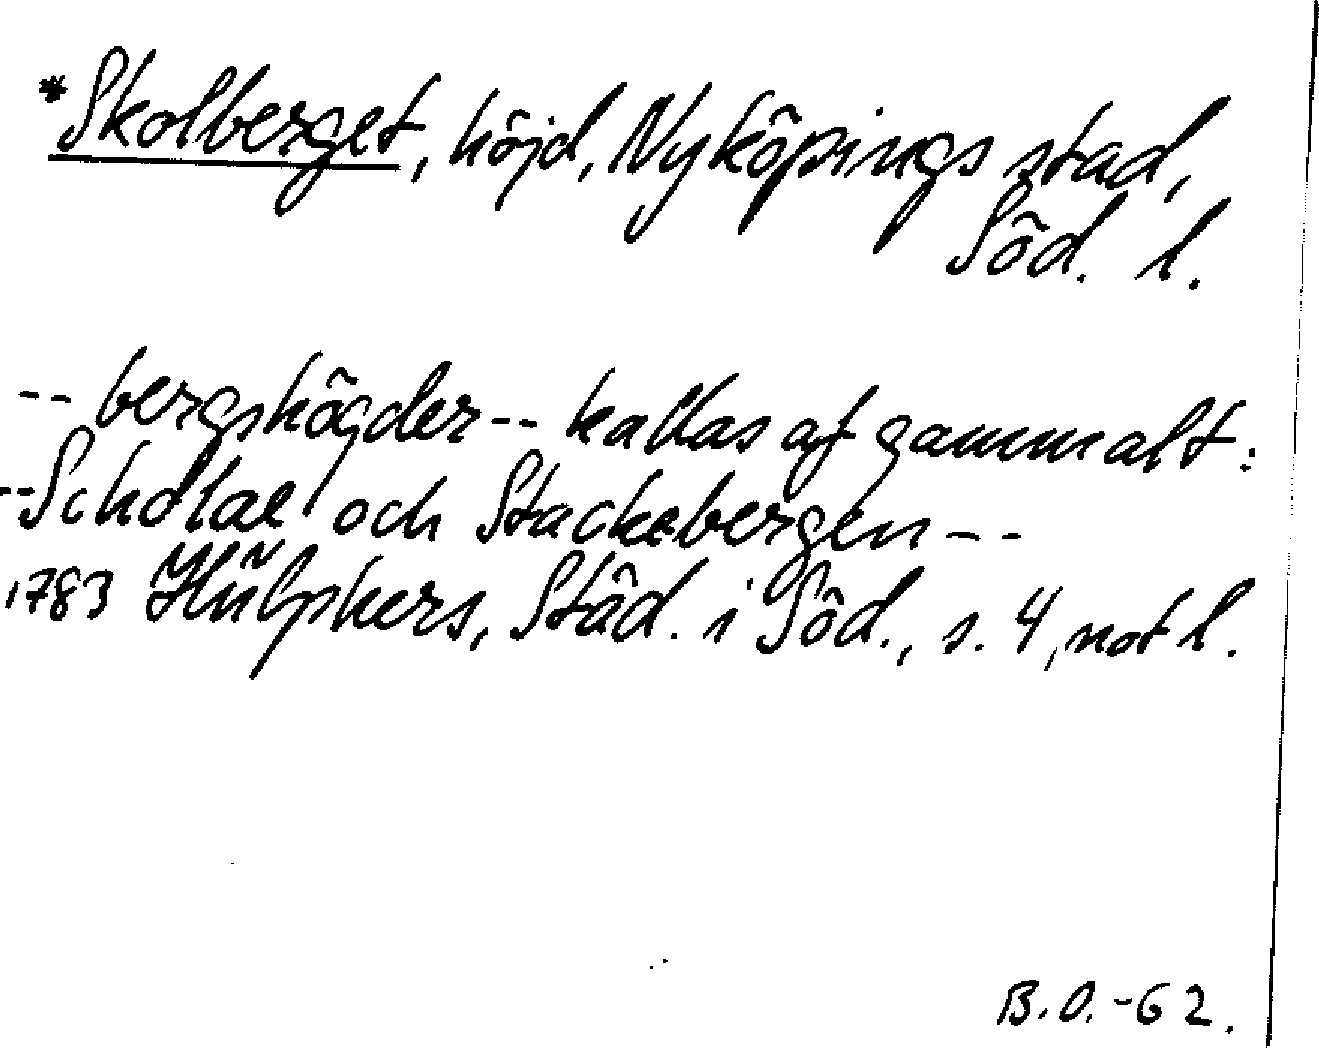 *Skolberget, höjd, Nyköpings stad,
Söd. l.
-- bergshögder -- kallas af gammalt:
-- Scholae och Stackebergen --
1783 Hülphers, Städ. i Söd., s. 4, not l.
B.O.-62.